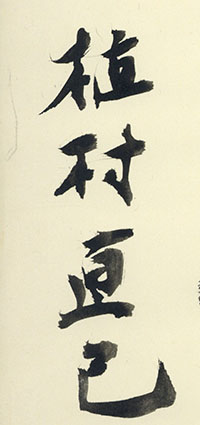 植村直己